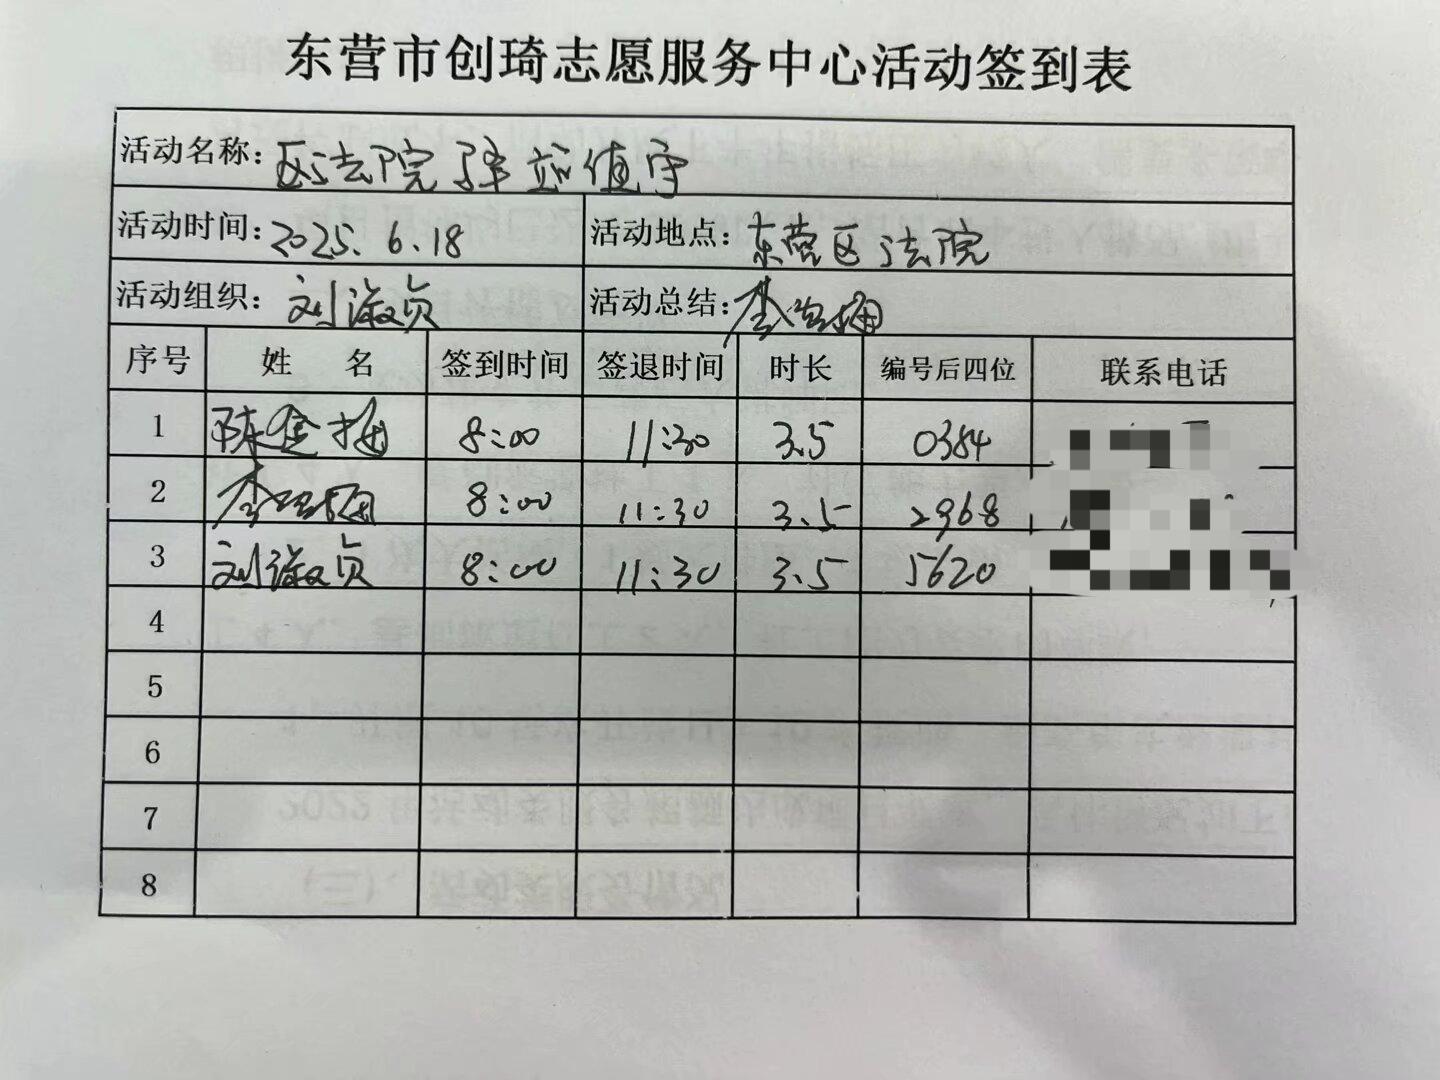 东营市创琦志愿服务中心活动签到表
活动名称: 区法院 站值守
活动时间: 2025.6.18 活动地点: 东营区法院
活动组织: 刘淑贞 活动总结: 李
序号 姓 名 签到时间 签退时间 时长 编号后四位 联系电话
1 陈金 8:00 11:30 3.5 0384
2 李 8:00 11:30 3.5 2968
3 刘淑贞 8:00 11:30 3.5 5620
4
5
6
7
8